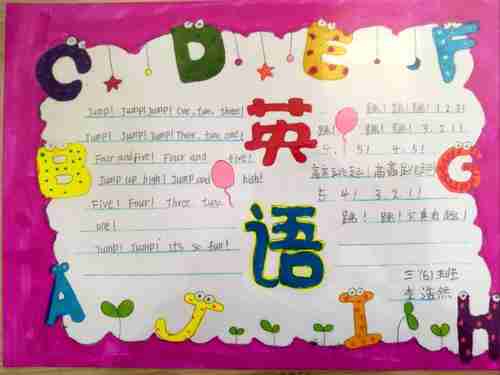 C D E F
Jump! Jump! Jump! One, two, three!
Jump! Jump! Jump! Three, two, one!
Four and five! Four and five!
Jump up high! Jump and high!
Five! Four! Three, two,
one!
Jump! Jump! it's so fun!
英
语
跳! 跳! 跳! 1.2.3!
跳! 跳! 跳! 3.2.1!
4. 5! 4. 5!
高高跳起!
5 4! 3.2.1!
跳! 跳! 真有趣!
三(6)班
李浩然
B
G
A
J
I
H